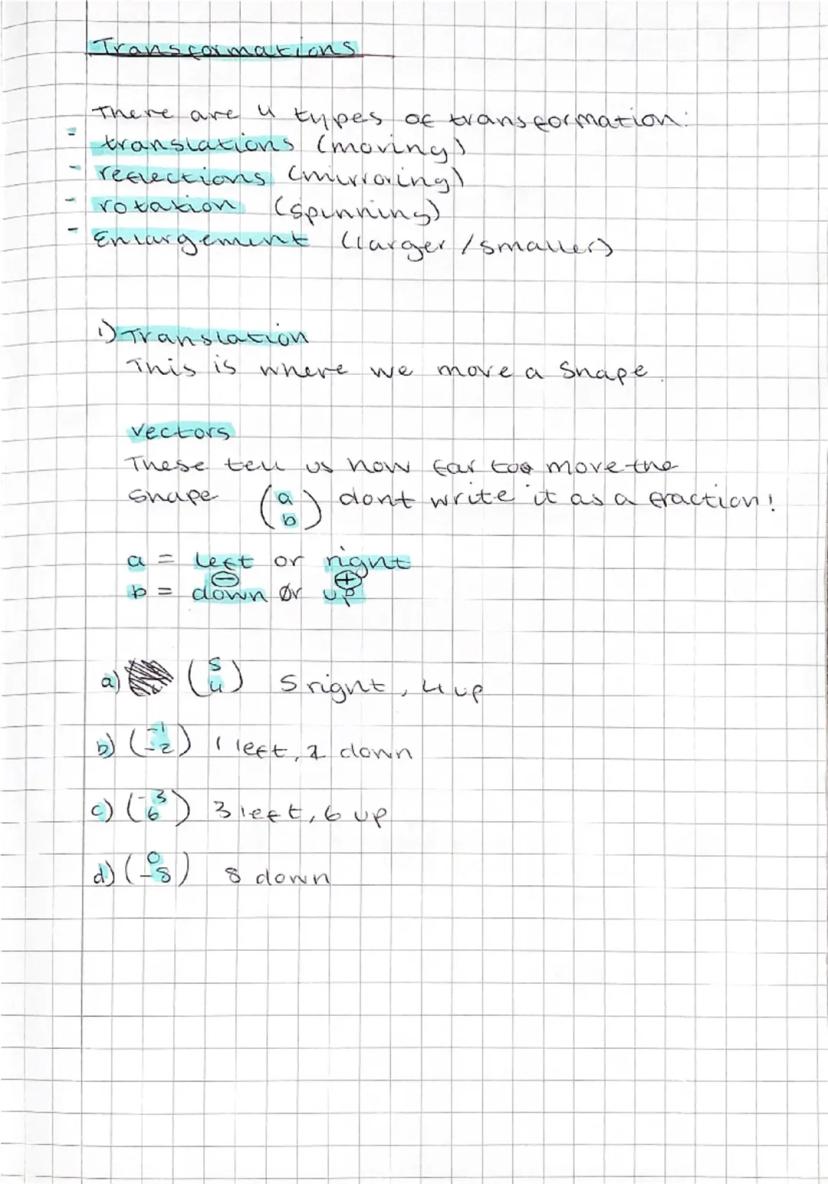 Transformations
There are 4 types of transformation:
- translations (moving)
- reflections (mirroring)
- rotation (spinning)
- Enlargement (larger/smaller)
1) Translation
This is where we move a shape.
vectors
These tell us how far too move the
shape (a b) dont write it as a fraction!
a = left or right
⊖ ⊕
b = down or up
a) (5 4) 5 right, 4 up
b) (-1 -2) 1 left, 2 down
c) (-3 6) 3 left, 6 up
d) (0 -8) 8 down